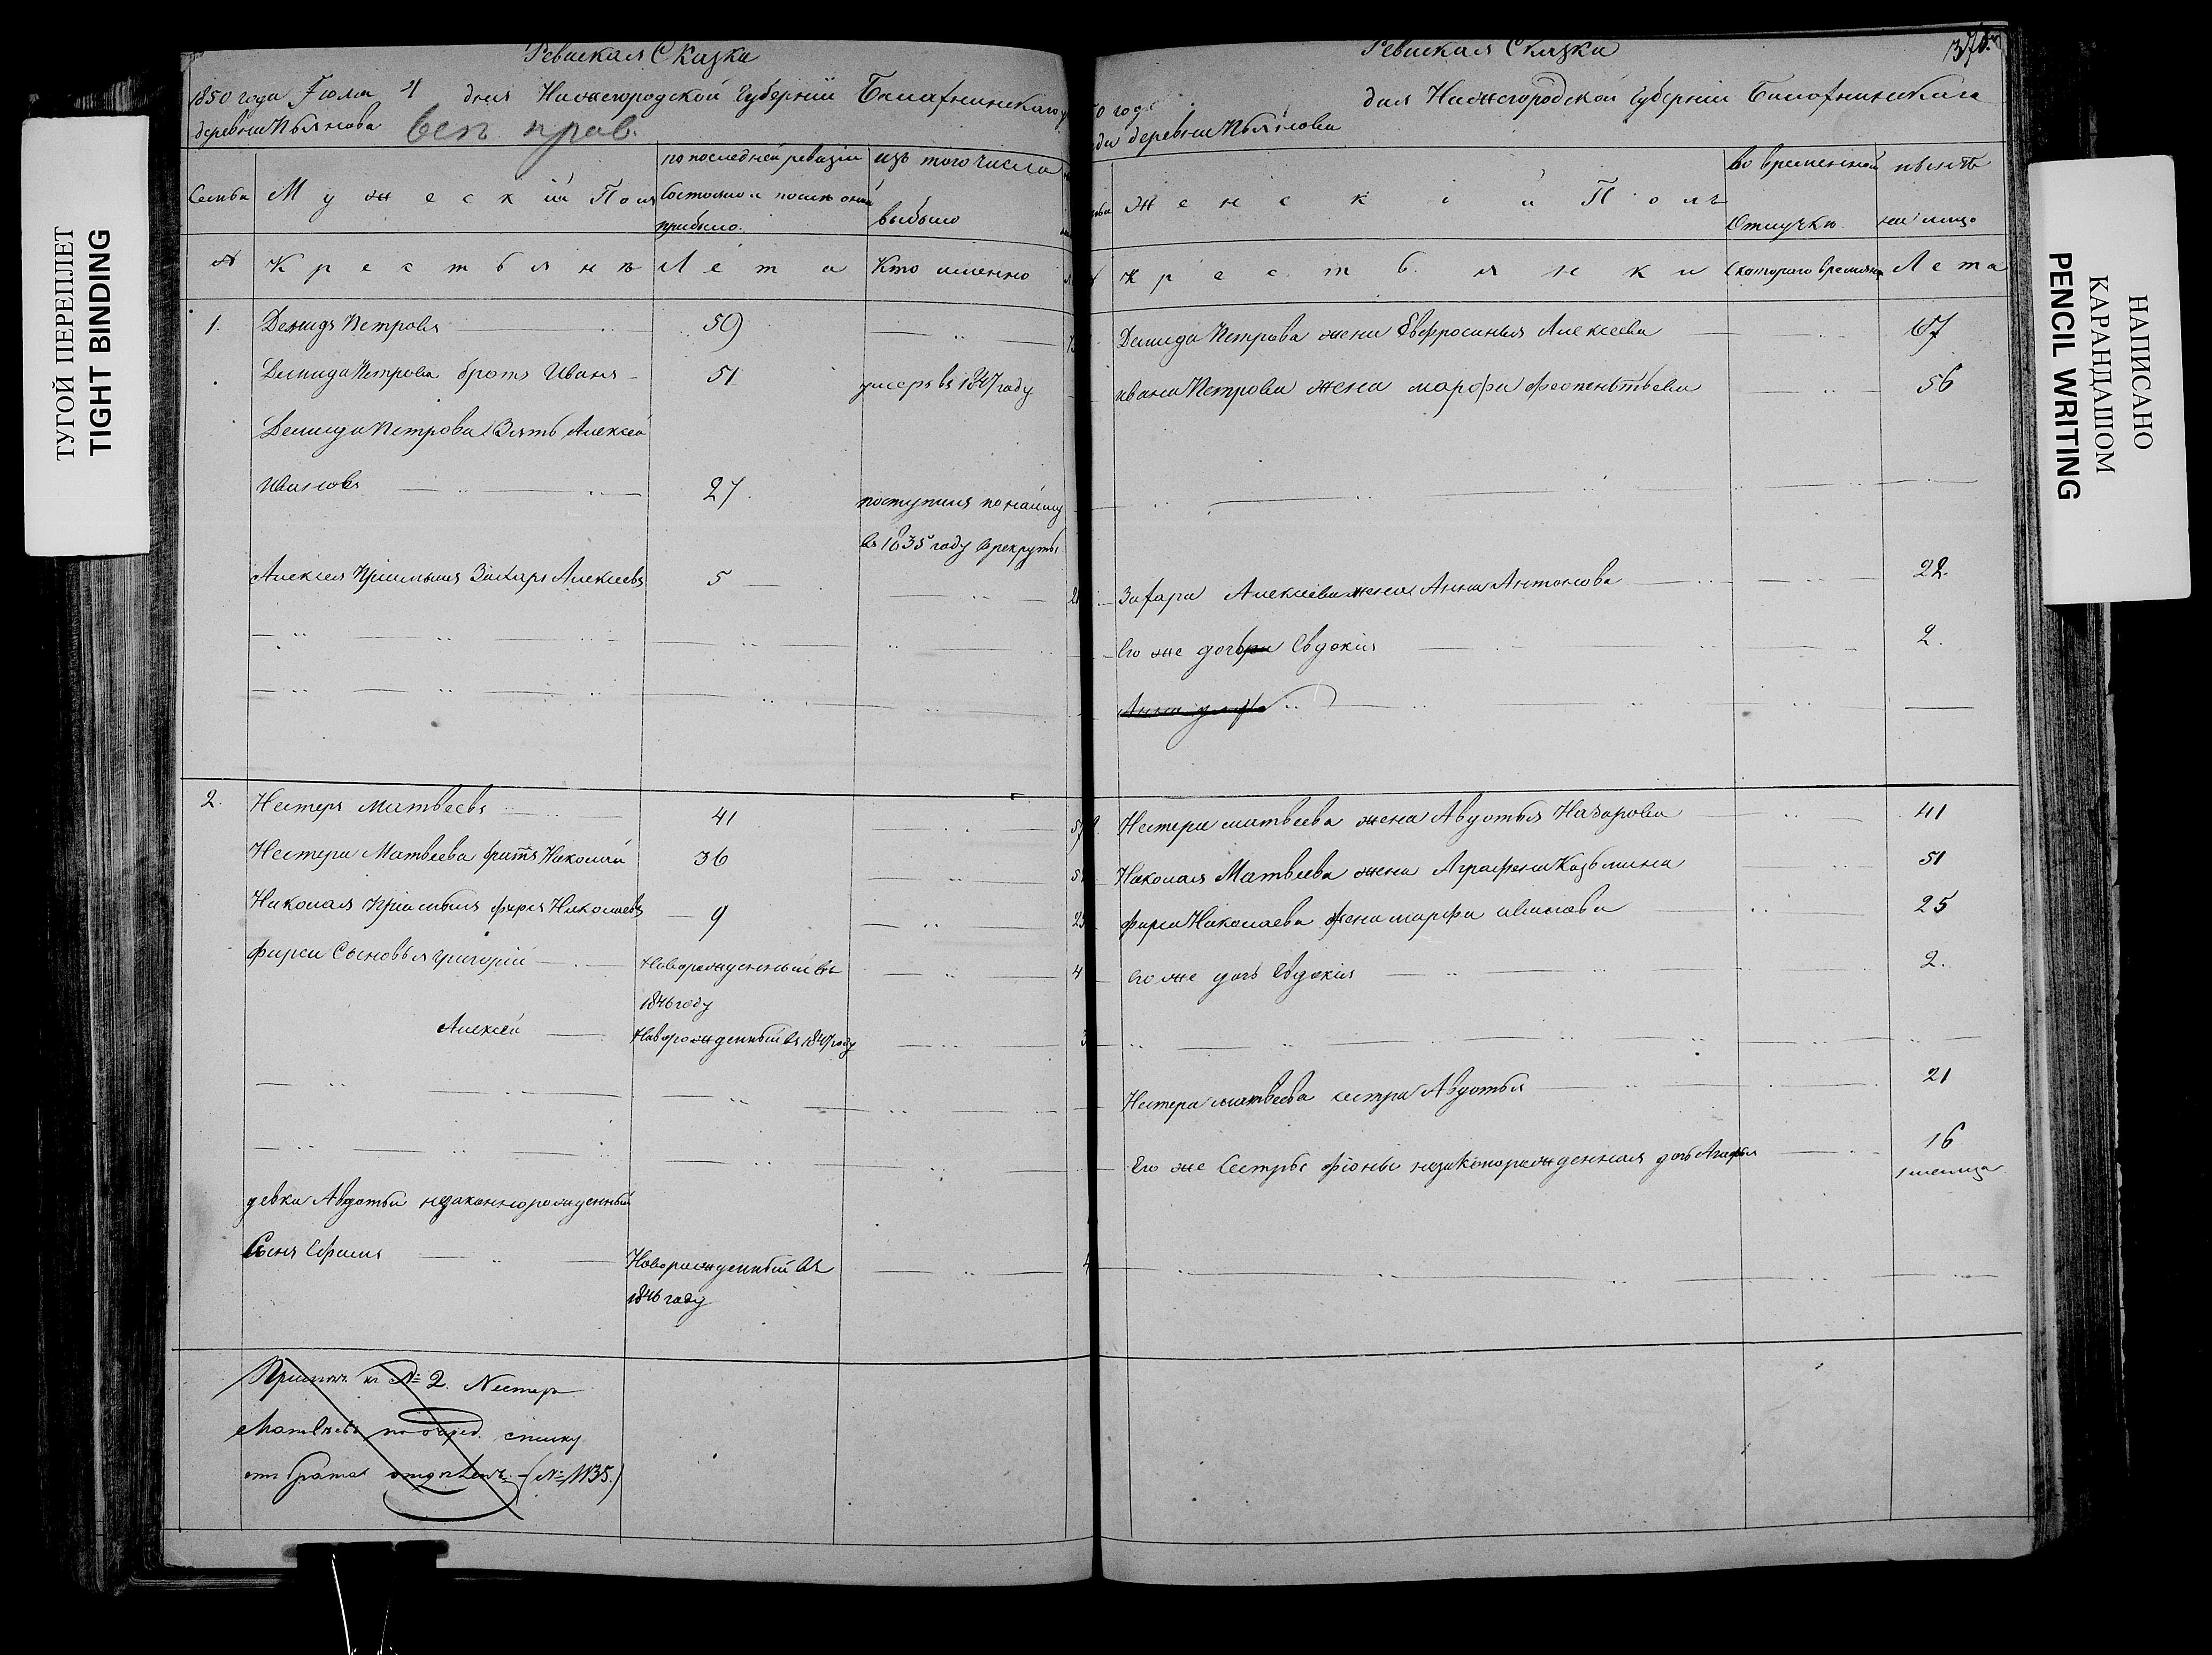 ТУГОЙ ПЕРЕПЛЕТ
TIGHT BINDING
Ревиская Сказка
1850 года Июля 4 дня Нижегородской Губернии Балахнинскаго
деревни Пьянова
Семьи
Мужеский Пол
по последней ревизии
состояло и после оной
прибыло.
изъ того числа
выбыло
№
Крестьяне
Лета
Кто именно
1. Демидъ Петровъ 59
Демида Петрова братъ Иванъ 51 умеръ въ 1847 году
Демида Петрова Зять Алексей
Ивановъ 27. поступилъ по найму
въ 1835 году в рекруты
Алексея Приимышъ Захаръ Алексеевъ 5
2. Нестеръ Матвеевъ 41
Нестера Матвеева братъ Николай 36
Николая Приемышъ фирсъ Николаевъ 9
фирса Сыновья григорий Новорожденный въ
1846 году
Алексей Новорожденный въ 1847 году
девки Авдотьи незаконнорожденный
Сынъ Ефимъ Новорожденный въ
1846 году
№ 2. Нестеръ
Матвеевъ списку
отъ брата (№ 1135.)
Ревиская Сказка
дня Нижегородской Губернии Балахнинскаго
деревни Пьянова
Женский Полъ
Во временной
Отлучке
ныне
на лицо
Крестьянки
С котораго времени
Лета
Демида Петрова жена Евфросинья Алексеева 67
ивана Петрова жена марфа 56
Захара Алексеева жена Анна Антонова 22.
Его же дочь Евдокия 2.
Анна
Нестера матвеева жена Авдотья Назарова 41
Николая Матвеева жена Аграфена Козьмина 51
фирса Николаева жена марфа иванова 25
Его же дочь Евдокия 2.
Нестера матвеева сестра Авдотья 21
Его же Сестры незаконорожденная дочь Агафья 16
НАПИСАНО
КАРАНДАШОМ
PENCIL WRITING